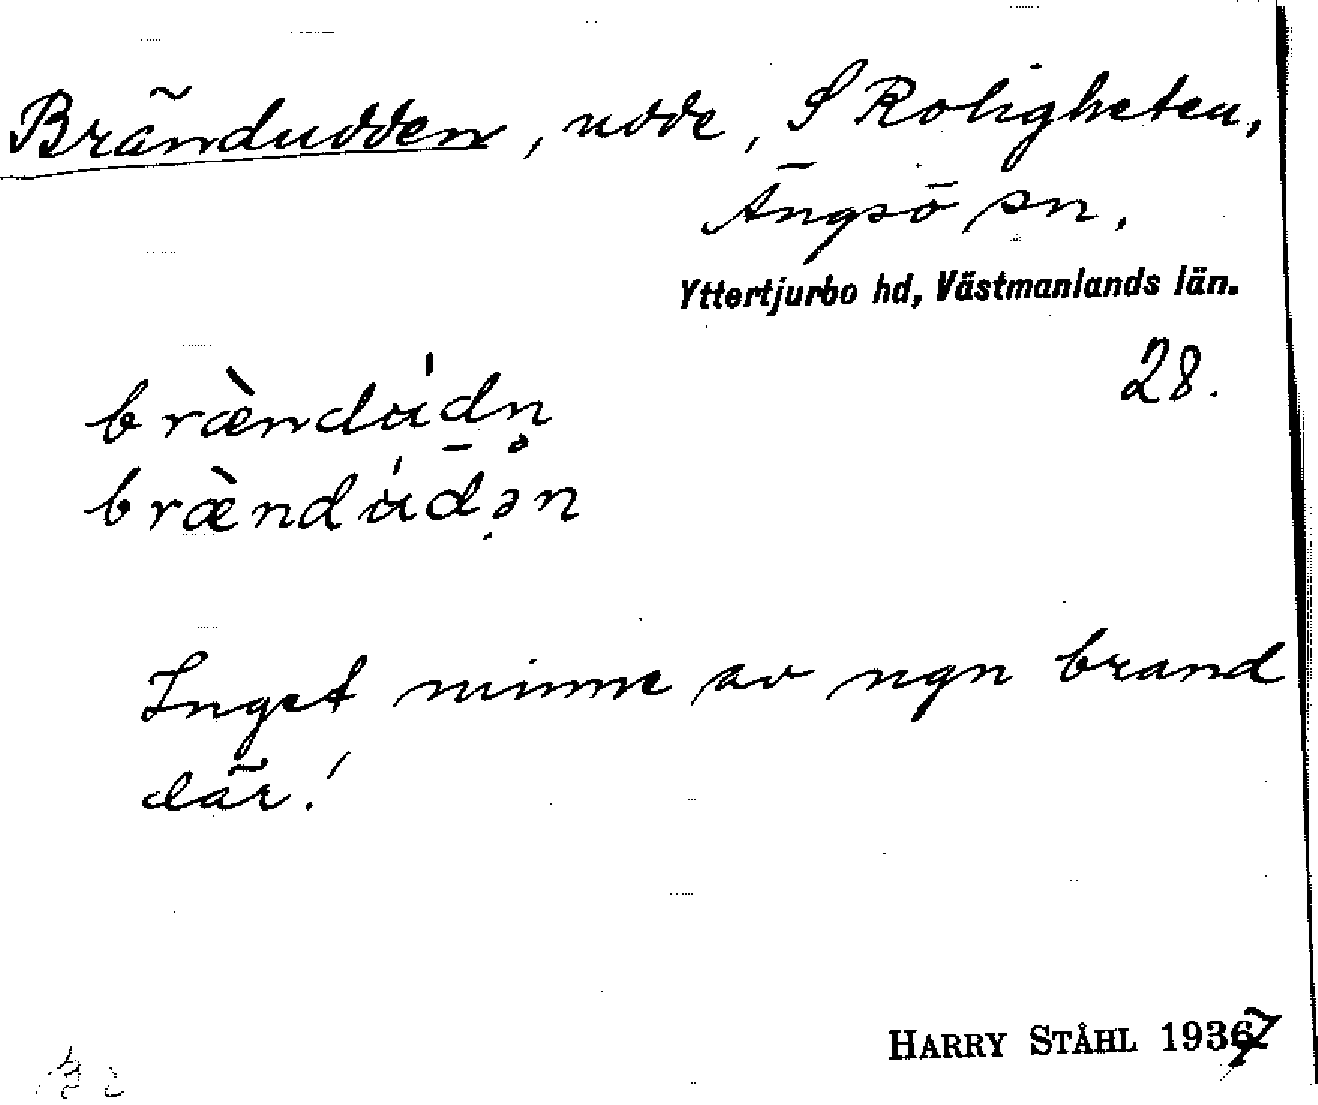 Brändudden, udde, S Roligheten,
Ängsö sn.
Yttertjurbo hd, Västmanlands län.
28.
bræ̀ndúd̠n̥
bræ̀ndúdə̣n
Inget minne av ngn brand
där!
HARRY STÅHL 1937